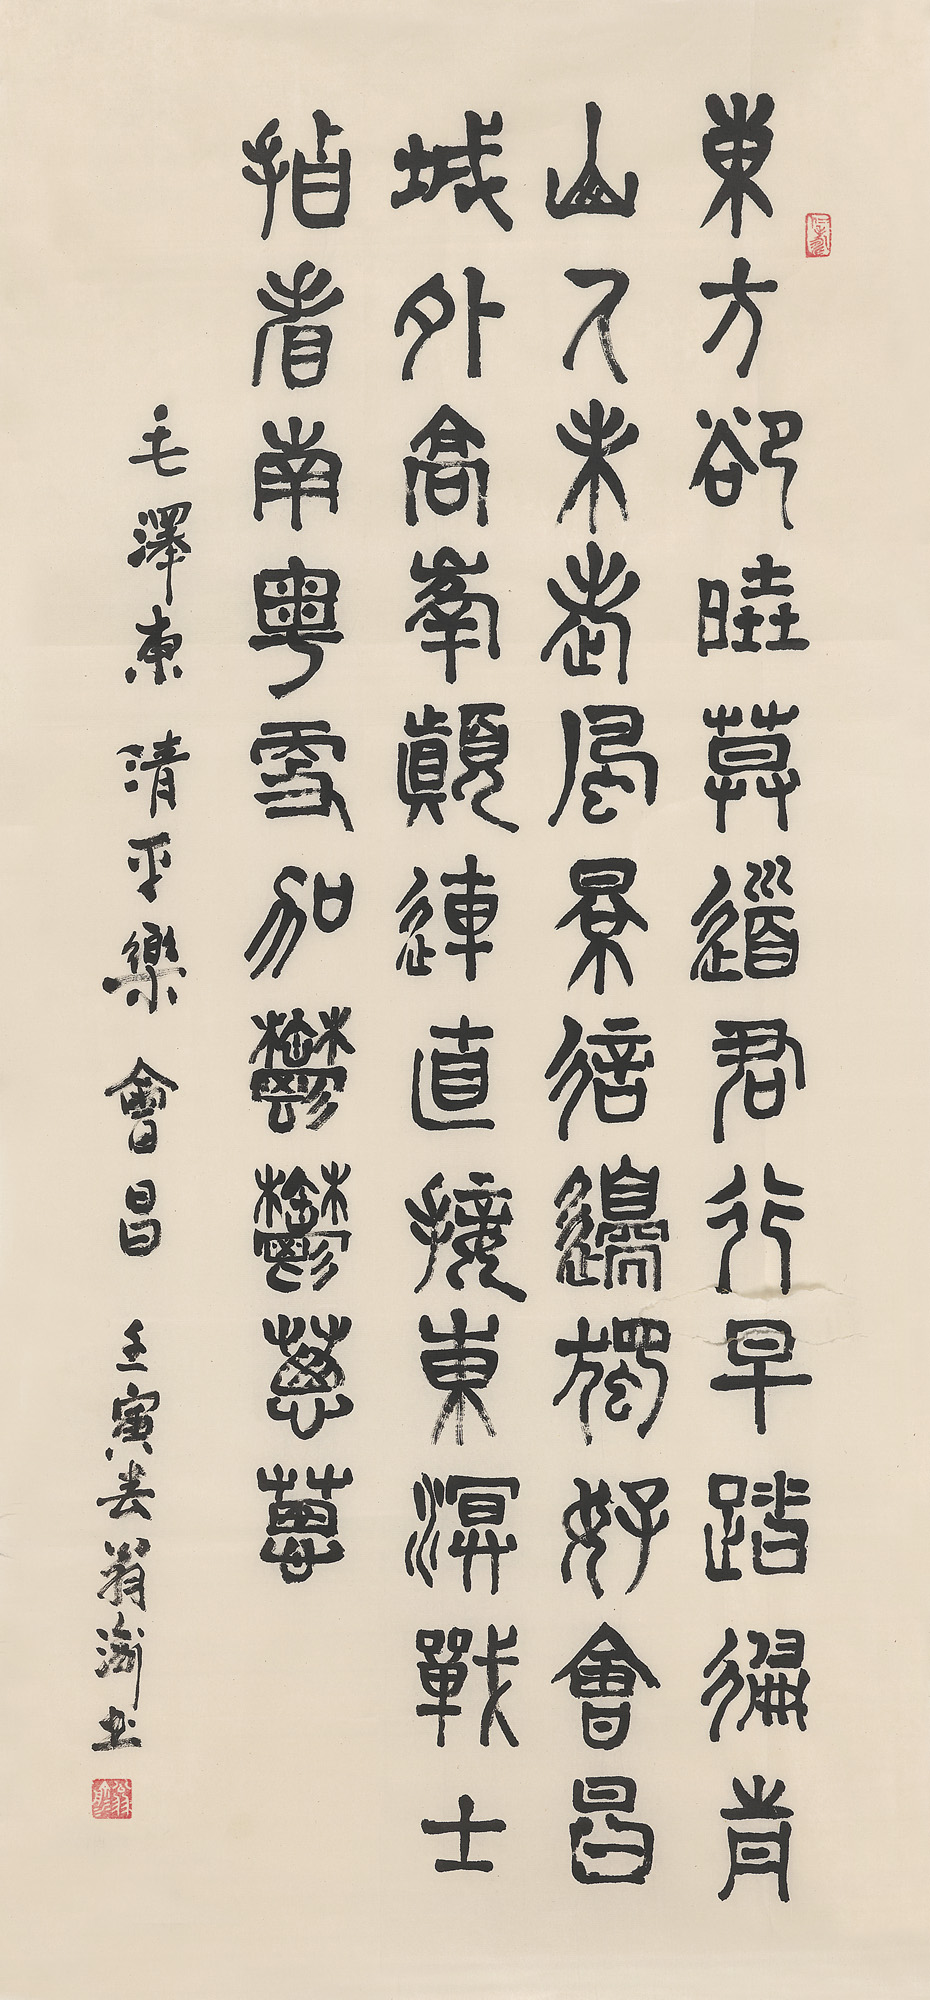 東方欲曉莫道君行早踏徧青
山人未老風景這邊獨好會昌
城外高峯顛連直接東溟戰士
指看南粵更加鬱鬱蔥蔥
毛澤東 清平樂 會昌 壬寅春翁渝书